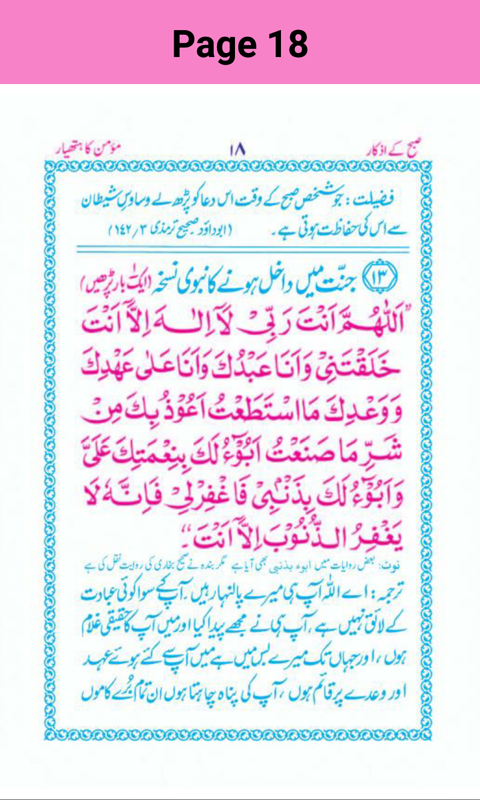 Page 18
صبح کے اذکار ۱۸ مؤمن کا ہتھیار
فضیلت: جو شخص صبح کے وقت اس دعا کو پڑھ لے وساوسِ شیطان
سے اس کی حفاظت ہوتی ہے۔ (ابوداؤد صحیح ترمذی ۱۴۲/۳)
۱۳ جنّت میں داخل ہونے کا نبوی نسخہ (ایک بار پڑھیں)
"اَللّٰهُمَّ اَنْتَ رَبِّیْ لَآ اِلٰـهَ اِلَّآ اَنْتَ
خَلَقْتَنِیْ وَاَنَا عَبْدُكَ وَاَنَا عَلٰى عَهْدِكَ
وَوَعْدِكَ مَا اسْتَطَعْتُ اَعُوْذُ بِكَ مِنْ
شَرِّ مَا صَنَعْتُ اَبُوْءُ لَكَ بِنِعْمَتِكَ عَلَیَّ
وَاَبُوْءُ لَكَ بِذَنْۢبِیْ فَاغْفِرْلِیْ فَاِنَّهٗ لَا
یَغْفِرُ الذُّنُوْبَ اِلَّآ اَنْتَ"۔
نوٹ: بعض روایات میں ابوء بذنبی بھی آیا ہے مگر بندہ نے صحیح بخاری کی روایت نقل کی ہے
ترجمہ: اے اللہ آپ ہی میرے پالنہار ہیں۔ آپ کے سوا کوئی عبادت
کے لائق نہیں ہے، آپ ہی نے مجھے پیدا کیا اور میں آپ کا حقیقی غلام
ہوں، اور جہاں تک میرے بس میں ہے میں آپ سے کئے ہوئے عہد
اور وعدے پر قائم ہوں، آپ کی پناہ چاہتا ہوں ان تمام بُرے کاموں